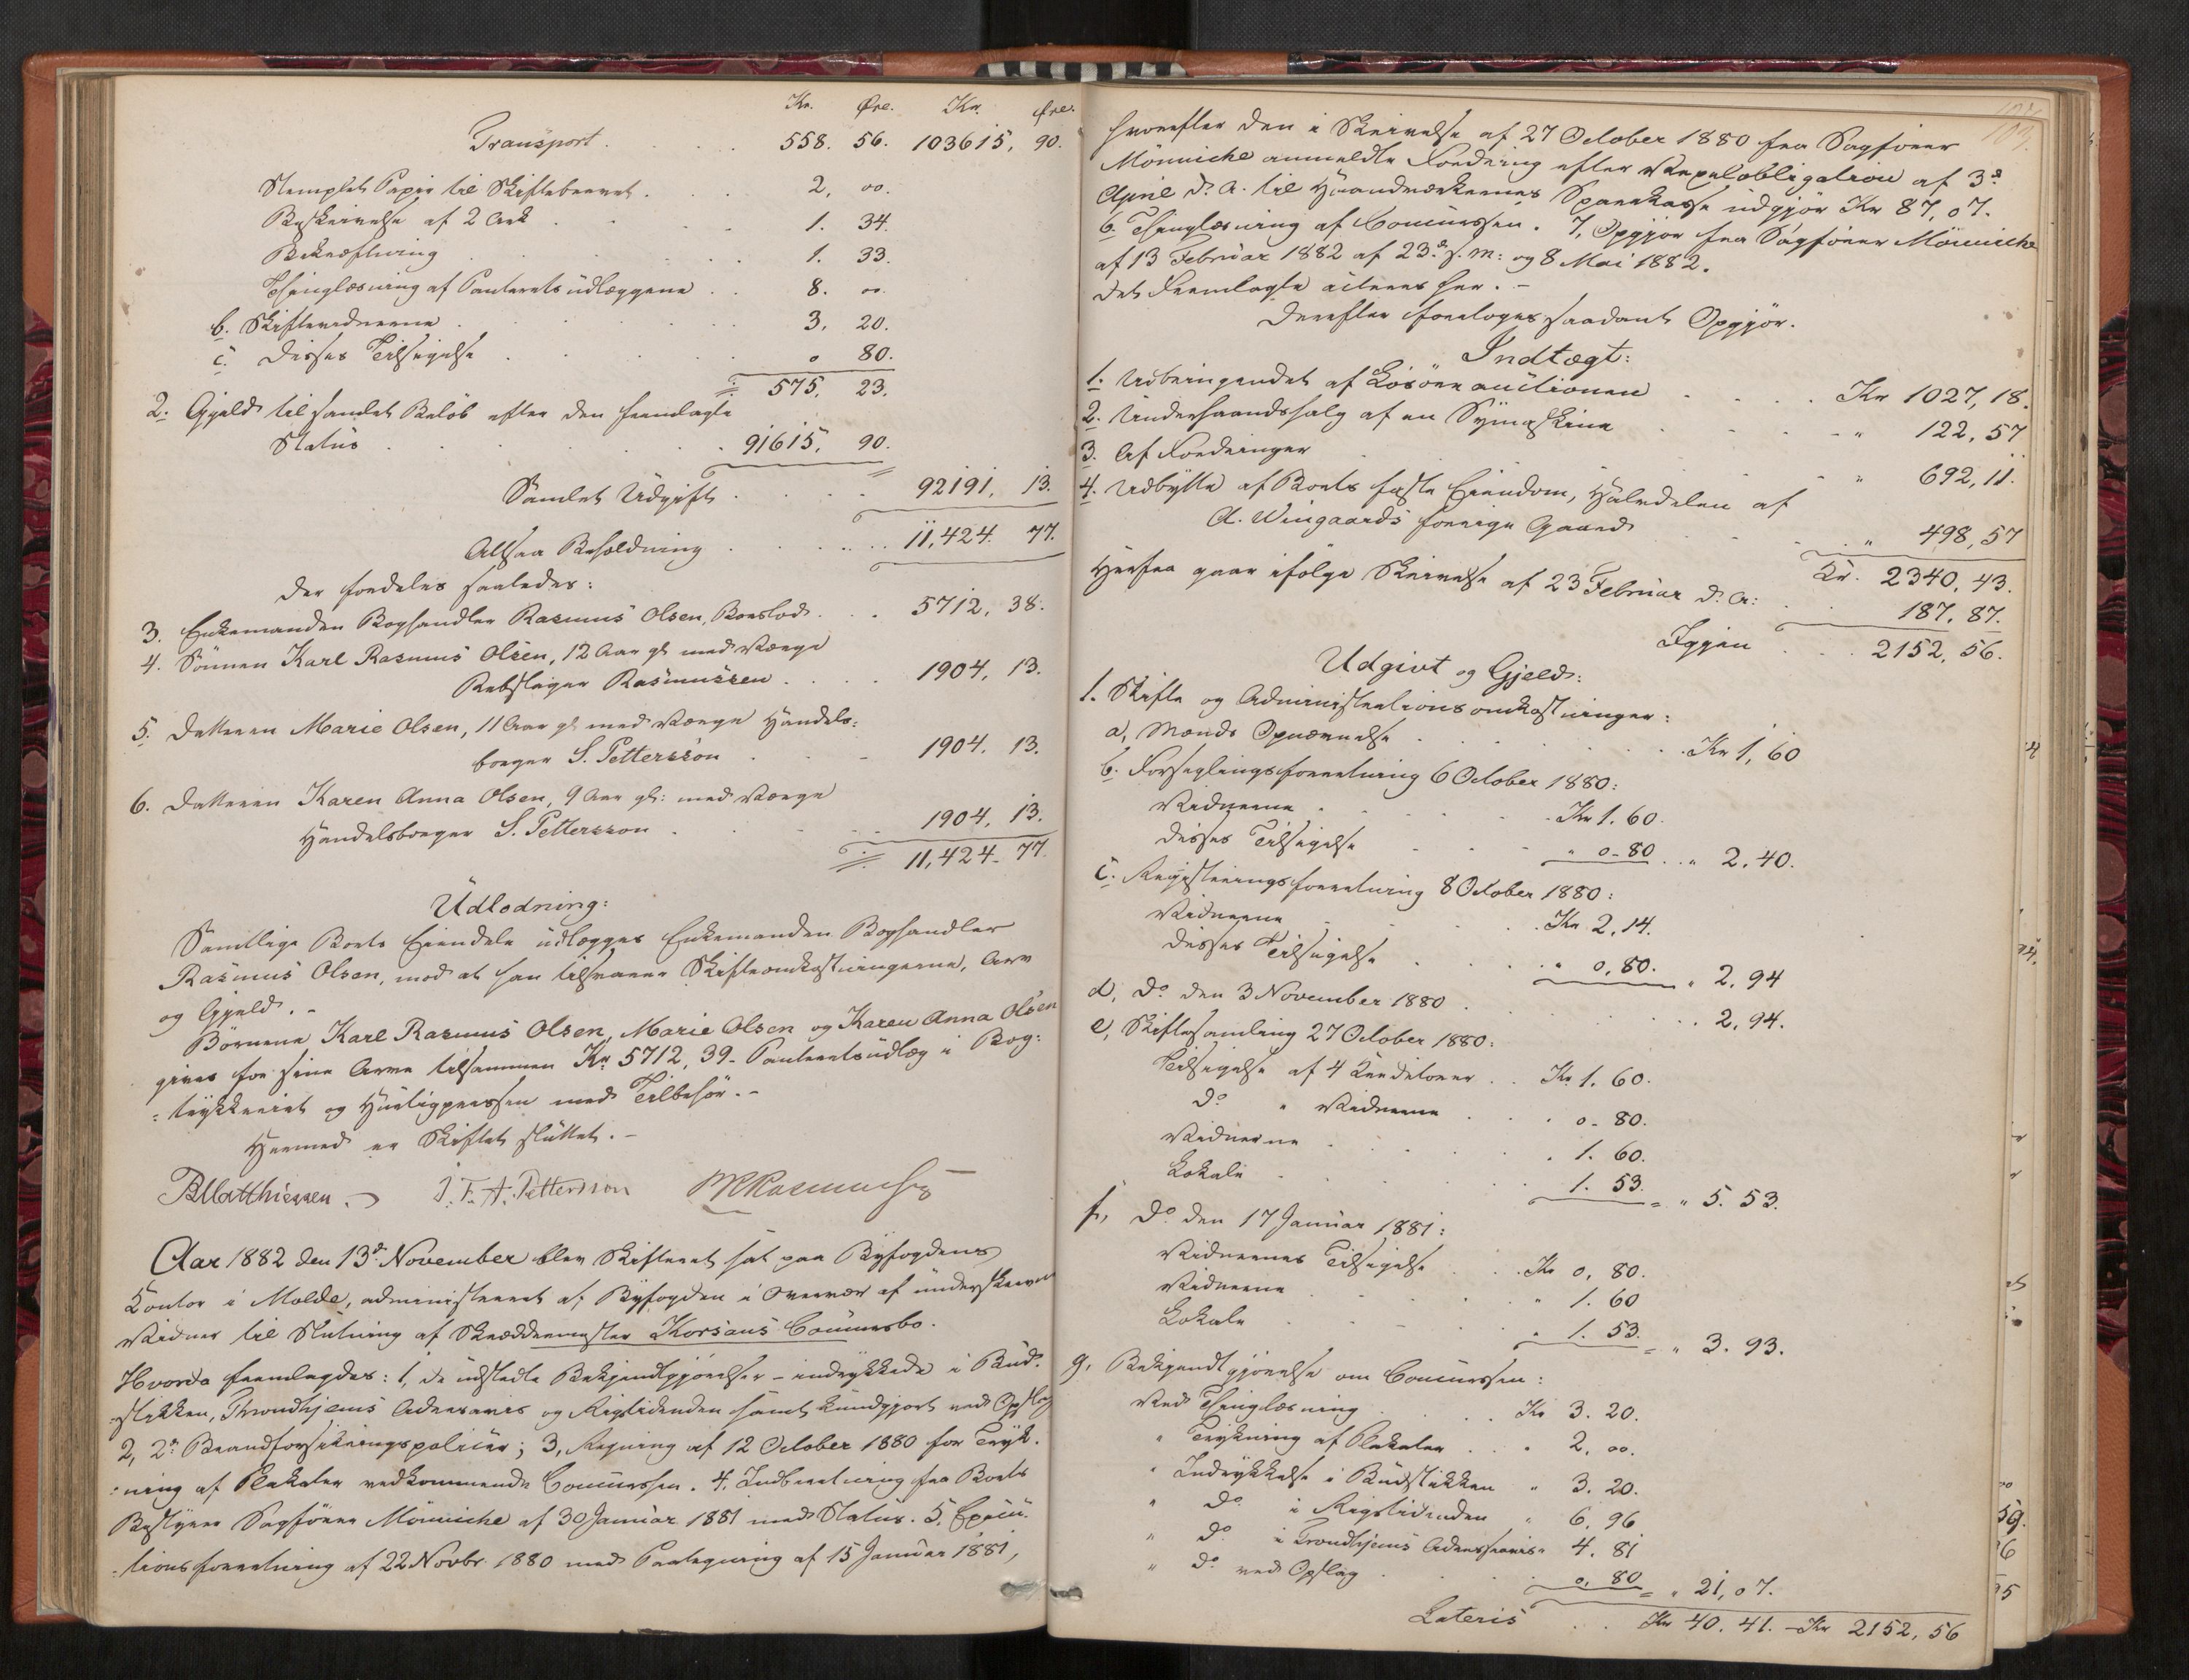 Kr. Øre. Kr. Øre.
Transport . . . . 558. 56. 103615, 90.
Stemplet Papir til Skiftebrevet . . 2, 00.
Beskrivelse af 2 Ark . . . 1. 34.
Bekræftning . . . . 1. 33.
Thinglæsning af Panteretsudlæggene . . 8. 00.
b. Skiftevidnerne . . . . 3, 20.
c. disses Tilsigelse . . . . 0 80.
575, 23.
2. Gjæld til samlet Beløb efter den fremlagte
Status . . . . 91615, 90.
Samlet Udgift . . . . 92191, 13.
Altsaa Beholdning . . . . 11,424. 77.
der fordeles saaledes:
3. Enkemanden Boghandler Rasmus Olsen, Boeslod . . 5712, 38.
4. Sønnen Karl Rasmus Olsen, 12 Aar gl. med Værge
Rebslager Rasmussen . . . 1904, 13.
5. Datteren Marie Olsen, 11 Aar gl. med Værge Handels-
borger S. Pettersson . . . 1904. 13.
6. Datteren Karen Anna Olsen, 9 Aar gl: med Værge
Handelsborger S. Pettersson . . . 1904, 13.
11,424. 77.
Udlodning:
Samtlige Boets Eiendele udlægges Enkemanden Boghandler
Rasmus Olsen, mod at han tilsvarer Skifteomkostningerne, Arv
og Gjæld. -
Børnene Karl Rasmus Olsen, Marie Olsen og Karen Anna Olsen
gives for sine Arve tilsammen Kr. 5712, 39. Panteretsudlæg i Bog:
=trykkeriet og Hurtigpressen med Tilbehør. -
Hermed er Skiftet sluttet. -
BMatthiessen. J. F. A. Pettersson MRasmussen
Aar 1882 den 13de November blev Skifteret sat paa Byfogdens
Kontor i Molde, administreret af Byfogden i Overvær af underskrevne
Vidner til Slutning af Skræddermester Korsans Concursbo.
Hvorda fremlagdes: 1, de udstedte Bekjendtgjørelser - indrykkede i Bud-
stikken, Throndhjems Adresavis og Rigstidenden samt kundgjort ved Opslag
2, 2de Brandforsikringspolicer; 3, Regning af 12 October 1880 for Tryk-
=ning af Plakater vedkommende Concursen. 4. Indberetning fra Boets
Bestyrer Sagfører Mönniche af 30 Januar 1881 med Status. 5. Execu-
=tionsforretning af 22 Novbr. 1880 med Paategning af 15 Januar 1881,
103.
hvorefter den i Skrivelse af 27 October 1880 fra Sagfører
Mönniche anmeldte Fordring efter Vexelobligation af 3de
April d. A. til Haandværkernes Sparekasse udgjør Kr 87,07.
6. Thinglæsning af Concursen. 7, Opgjør fra Sagfører Mönniche
af 13 Februar 1882 af 23de s. M: og 8 Mai 1882.
Det Fremlagte citeres her. -
Derefter foretoges saadant Opgjør.
Indtægt:
1. Udbringendet af Løsøreauctionen . . . Kr 1027,18.
2. Underhaandssalg af en Symaskine . . . " 122,57
3. Af Fordringer . . . " 692,11.
4. Udbytte af Boets faste Eiendom, Halvdelen af
A. Wingaards forrige Gaard . . . " 498,57
Kr. 2340,43.
Herfra gaar ifølge Skrivelse af 23 Februar d. A: . . 187,87.
Igjen . . . 2152,56.
Udgivt og Gjeld:
1. Skifte og Administrationsomkostninger:
a, Mænds Opnævnelse . . . Kr 1,60
b. Forseglingsforretning 6 October 1880:
Vidnerne . . . Kr 1.60.
disses Tilsigelse . . . " 0-80 . . " 2.40.
c. Registreringsforretning 8 October 1880:
Vidnerne . . . Kr 2.14.
disses Tilsigelse . . . " 0,80. " 2,94
d, Do. den 3 November 1880 . . . 2,94.
e, Skiftesamling 27 October 1880:
Tilsigelse af 4 Kreditorer . . Kr 1.60.
Do " Vidnerne . . . 0-80.
Vidnerne . . . 1.60.
Lokale . . . 1.53. = " 5.53.
f, Do. den 17 Januar 1881:
Vidnernes Tilsigelse . . Kr 0,80.
Vidnerne . . . " 1.60
Lokale . . . " 1.53. = " 3.93.
g, Bekjendtgjørelse om Concursen:
Ved Thinglæsning . . . Kr 3.20.
" Trykning af Plakater . . " 2,00.
" Indrykkelse i Budstikken " 3.20.
" Do. i Rigstidenden " 6,96
" Do. i Trondhjems Adresseavis " 4.81
" Do. ved Opslag . . . 0,80 = " 21,07.
Lateris . . . Kr 40.41. - Kr 2152,56